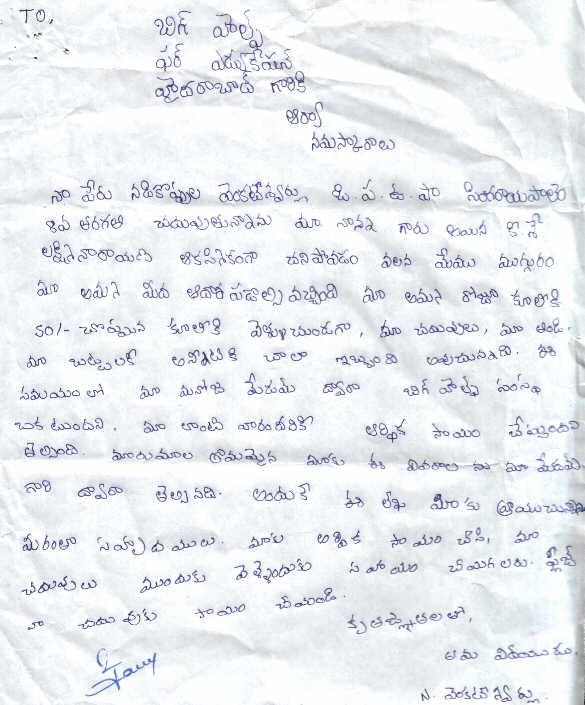 TO,
బిగ్ హెల్ప్
ఫర్ ఎడ్యుకేషన్
హైదరాబాద్ గారికి
ఆర్యా
నమస్కారాలు
నా పేరు వెంకటేశ్వర్లు, జి.ప.ఉ.పా
తరగతి చదువుతున్నాను మా నాన్న గారు అయిన కీ.శే
లక్ష్మినారాయణ ఆకస్మికంగా చనిపోవడం వలన మేము ముగ్గురం
మా అమ్మ మీద ఆధార పడాల్సి వచ్చింది మా అమ్మ రోజూ కూలికి
50/- చొప్పున కూలికి వెళ్ళుచుండగా, మా చదువులు, మా తిండి.
మా బట్టలకి అన్నిటికి చాలా ఇబ్బంది అవుచున్నది. ఈ
సమయంలో మా మనోజ మేడమ్ ద్వారా బిగ్ హెల్ప్ సంస్థ
ఒకటుందని. మా లాంటి వారందరికి ఆర్థిక సాయం చేస్తుందని
తెల్సింది. మారుమూల గ్రామమైన మాకు ఈ వివరాలను మా మేడమ్
గారి ద్వారా తెల్సినది. అందుకే ఈ లేఖ మీకు వ్రాయుచున్నా
మీరంతా సహృదయులు. మాకు ఆర్థిక సాయం చేసి, మా
చదువులు ముందుకు వెళ్ళేందుకు సహాయం చేయగలరు. ప్లీజ్
నా చదువుకు సాయం చేయండి.
కృతజ్ఞతలతో,
తమ విధేయుడు.
N. వెంకటేశ్వర్లు.